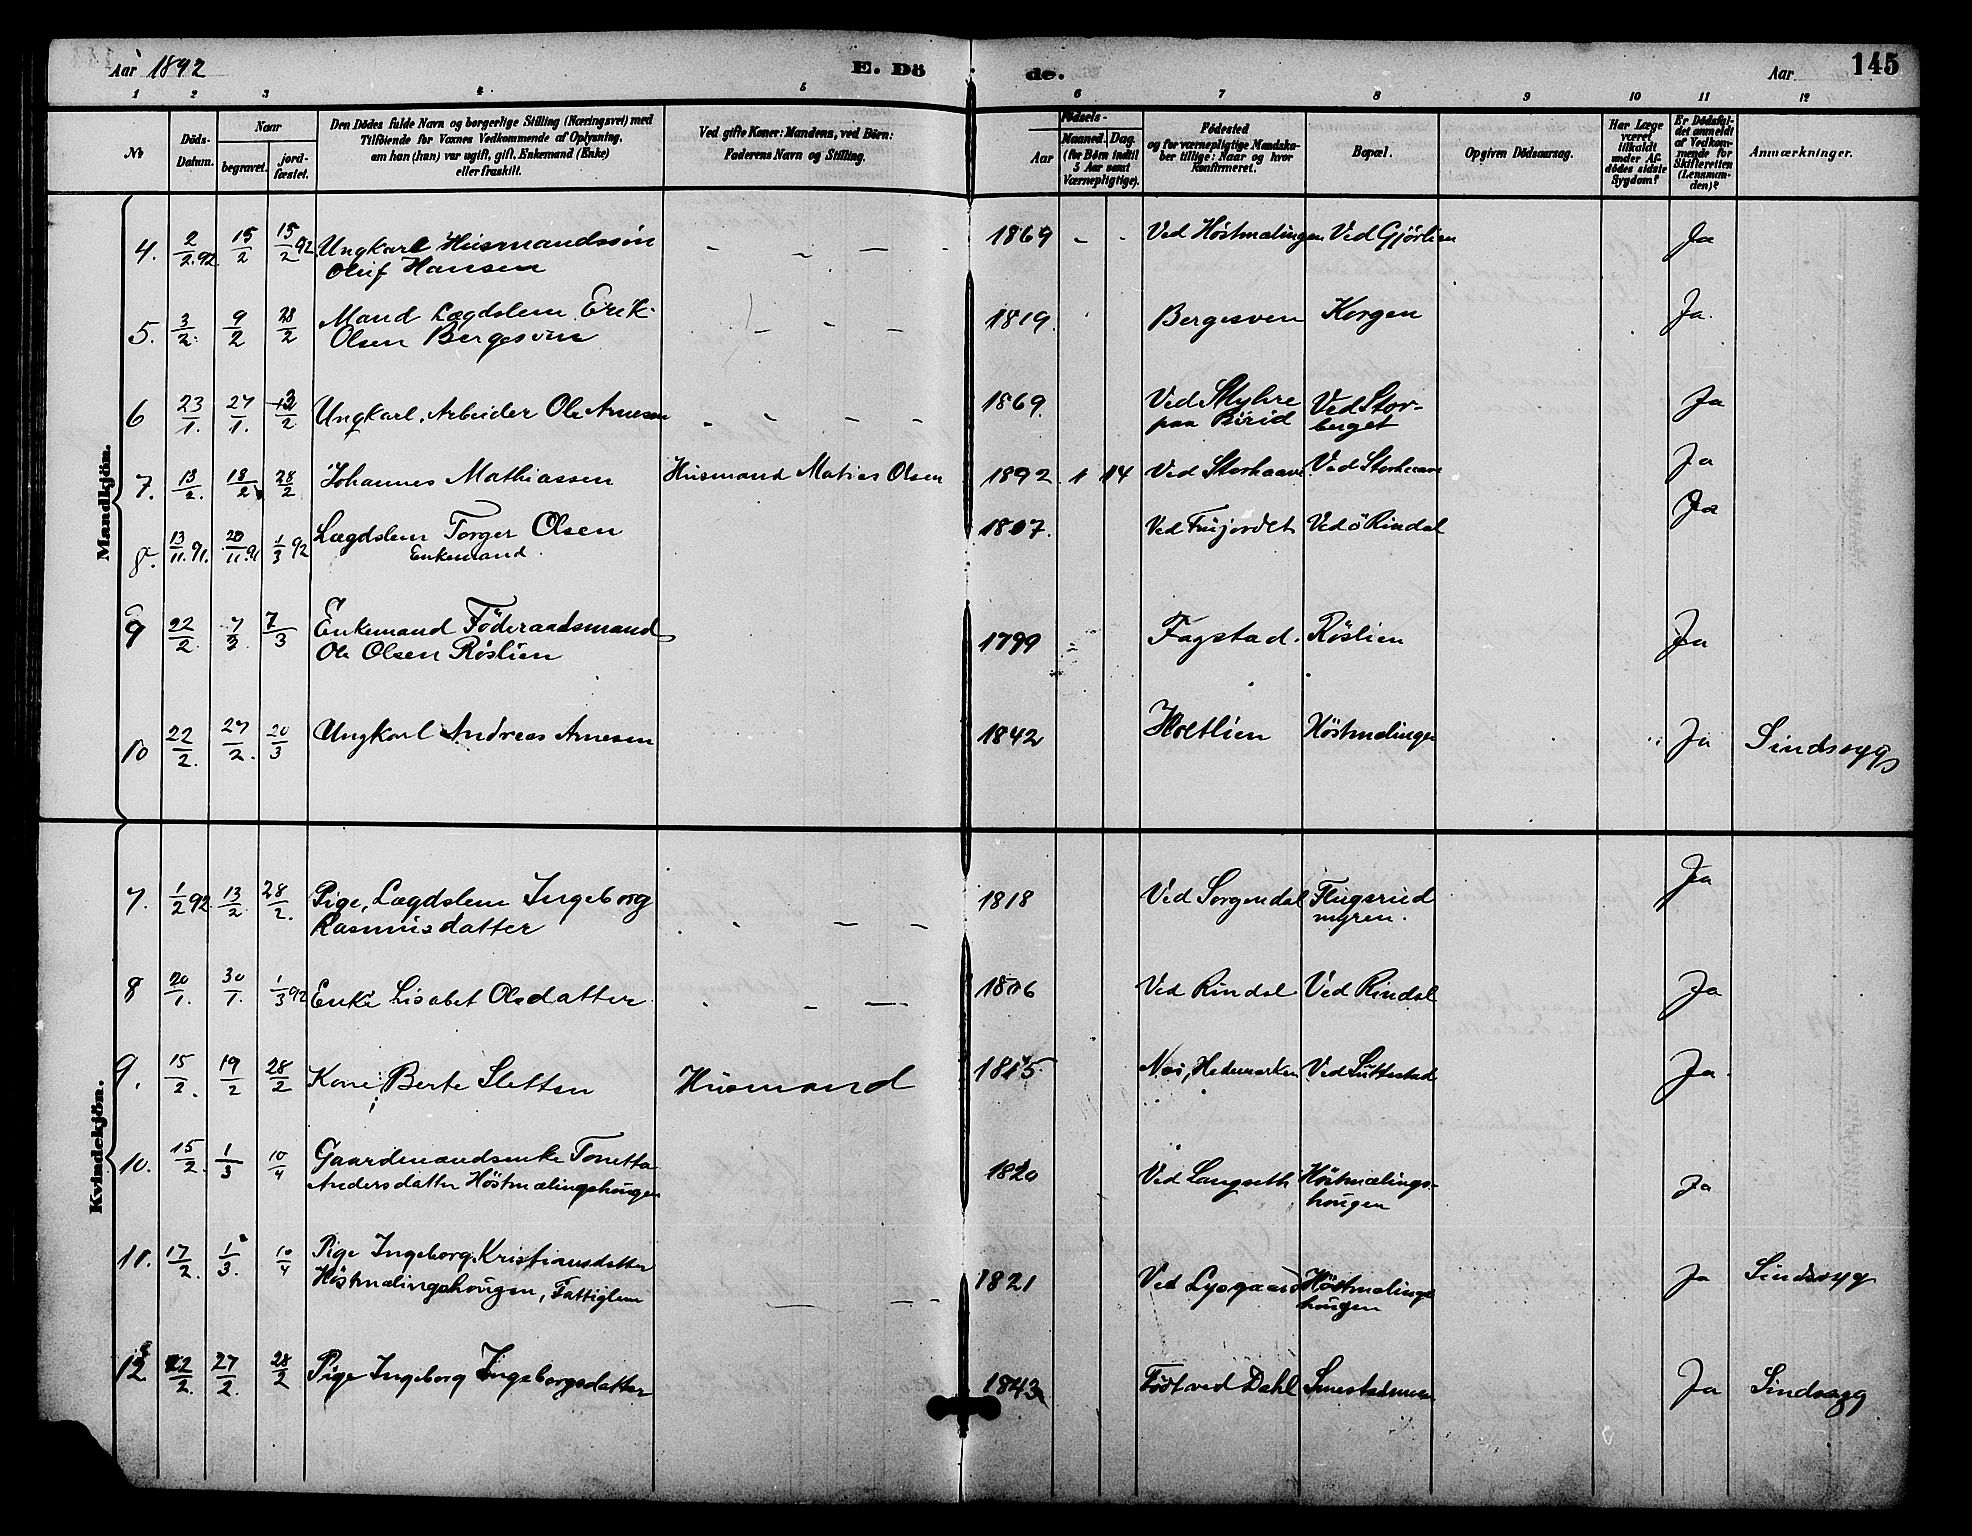 Aar 1892 E. Dö de. Aar 145
1 2 3 4 5 6 7 8 9 10 11 12
No. Döds-Datum. Naar begravet. jordfæstet. Den Dödes fulde Navn og borgerlige Stilling (Næringsvei) med Tilföiende for Voxnes Vedkommende af Oplysning, om han (hun) var ugift, gift, Enkemand (Enke) eller fraskilt. Ved gifte Koner: Mandens, ved Börn: Faderens Navn og Stilling. Födsels- Aar Maaned. Dag. (for Börn indtil 5 Aar samt Værnepligtige). Födested og for værnepligtige Mandskaber tillige: Naar og hvor Konfirmeret. Bopæl. Opgiven Dödsaarsag. Har Læge været tilkaldt under Afdödes sidste Sygdom? Er Dödsfaldet anmeldt af Vedkommende for Skifteretten (Lensmanden)? Anmærkninger.
Mandkjön.
4. 2/2 92 15/2 15/2 92 Ungkarl Husmandssön - - - 1869 - - Ved Höstmælingen Ved Gjörlien Ja
Oluf Hansen
5. 3/2 9/2 28/2 Mand Lægdslem Erik - - - 1819 Korgen Ja.
Olsen
6 23/1. 27/1. Ungkarl, Arbeider Ole Arnesen - - - - 1869 Ved Ved Stor- Ja
paa Birid berget
7. 13/2. 18/2 28/2 Johannes Mathiassen Husmand Matias Olsen 1892 1 14 Ved Ved Ja
8. 13/11. 91. 20/11. 91 1/3 92 Lægdslem Torger Olsen 1807. Ved Ved ö Rindal Ja
Enkemand
9 22/2. 7/3 7/3 Enkemand Föderaadsmand 1799 Fagstad. Röslien Ja
Ole Olsen Röslien
10 22/2. 27/2. 20/3 Ungkarl Andreas Arnesen 1842 Holtlien Höstmælingen Ja Sindssyg
Kvindekjön.
7. 1/2 92 13/2 28/2. Pige, Lægdslem Ingeborg 1818 Ved Sorgendal Flugsrud Ja
Rasmusdatter - - - myren.
8 20/1. 30/1. 1/3 92 Enke Lisabet Olsdatter - - - 1806 Ved Rindal Ved Rindal Ja
9. 15/2. 19/2 28/2 Kone Berte Sletten Husmand 1815 Nes, Hedemarken Ved Ja
10. 15/2. 1/3 10/4 Gaardmandsenke Tonetta 1820 Ved Langseth Höstmælings- Ja
Andersdatter Höstmælingshougen hougen
11. 17/2. 1/3. 10/4 Pige Ingeborg Kristiansdatter 1821 Ved Lysgaard Höstmælings Ja Sindssyg
Höstmælingshougen, Fattiglem - - - hougen
12 22/2. 27/2. 28/2 Pige Ingeborg Ingeborgsdatter 1843 Födt ved Dahl Ja Sindssyg